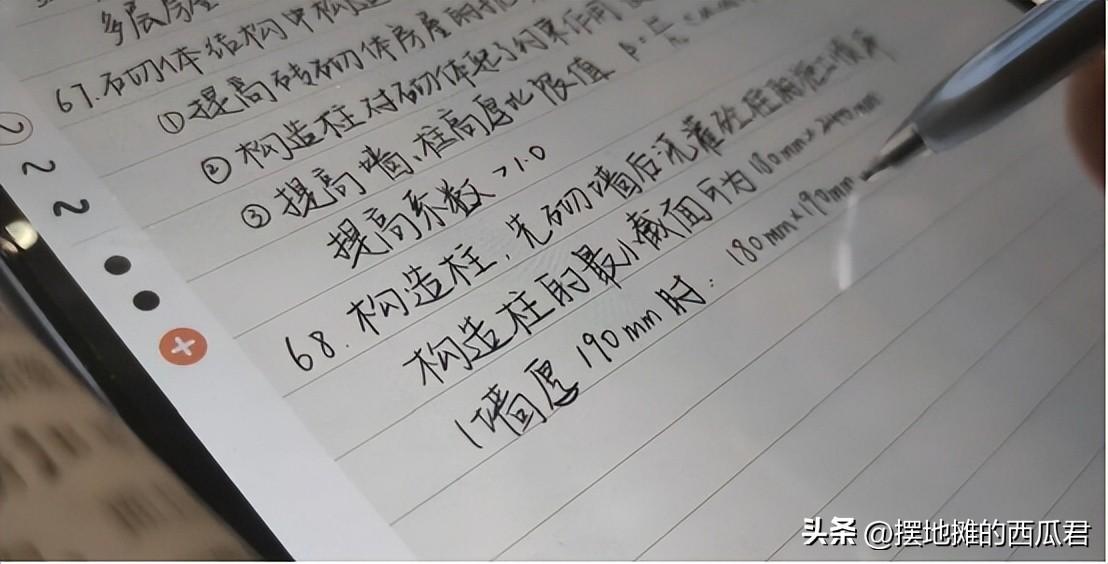 多层房屋
67.砌体结构中构造
①提高砖砌体房屋的抗
②构造柱对砌体起了约束作用
③提高墙、柱高厚比限值
提高系数>1.0
68.构造柱,先砌墙后浇灌砼柱
构造柱的最小截面可为180mm×240mm
(墙厚190mm时:180mm×190mm
头条 @摆地摊的西瓜君